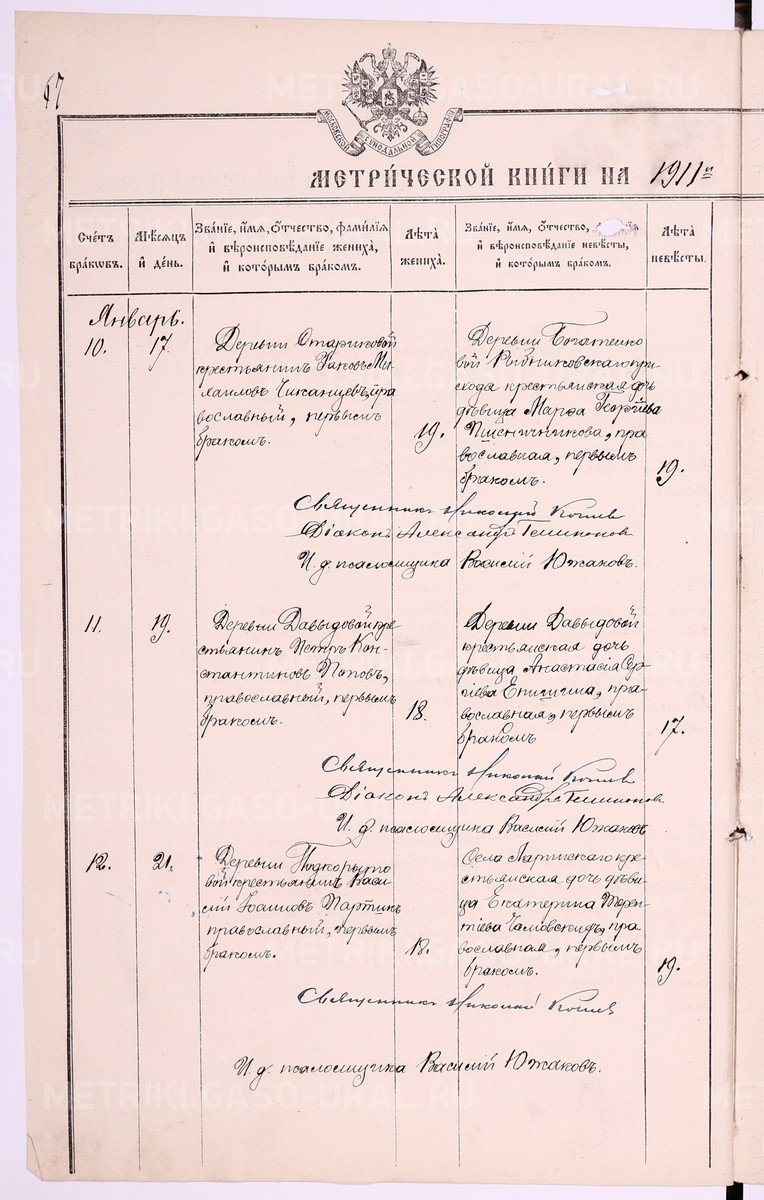 67
МОСКОВСКОЙ СѴНОДАЛЬНОЙ ТИПОГРАФІИ
МЕТРИ́ЧЕСКОЙ КНИ́ГИ НА 1911
Сче́тъ бра́кѡвъ.
Мѣ́сяцъ и де́нь.
Зва́нїе, и́мя, ѻ́тчество, фами́лїя и вѣроисповѣ́данїе жениха̀, и кото́рымъ бра́комъ.
Лѣ́та жениха̀.
Зва́нїе, и́мя, ѻ́тчество, и вѣроисповѣ́данїе невѣ́сты, и кото́рымъ бра́комъ.
Лѣ́та невѣ́сты.
Январь.
10.
17.
Деревни Стариковой
крестьянинъ Іаковъ Ми-
хаиловъ Чиканцевъ, пра
вославный, первымъ
бракомъ.
19.
Деревни Богатенко
вой Рыбниковскаго при
хода крестьянская дочь
дѣвица Марѳа Георгіева
Пшеничникова, пра
вославная, первымъ
бракомъ.
19.
Священникъ Николай
Діаконъ Александръ
И. д. псаломщика Василій Южаковъ.
11.
19.
Деревни Давыдовой кре
стьянинъ Петръ Кон-
стантиновъ Поповъ,
православный, первымъ
бракомъ.
18.
Деревни Давыдовой
крестьянская дочь
дѣвица Анастасія Сер-
гіева Епишина, пра-
вославная, первымъ
бракомъ
17.
Священникъ Николай
Діаконъ Александръ
И. д. псаломщика Василій Южаковъ
12.
21.
Деревни Подкорыто
вой крестьянинъ Васи
лій Іоиловъ Партинъ
православный, первымъ
бракомъ.
18.
Села Ларинскаго кре-
стьянская дочь дѣви-
ца Екатерина Терен-
тіева Чамовскихъ, пра
вославная, первымъ
бракомъ.
19.
Священникъ Николай
И. д. псаломщика Василій Южаковъ.
METRIKI.GASO-URAL.RU